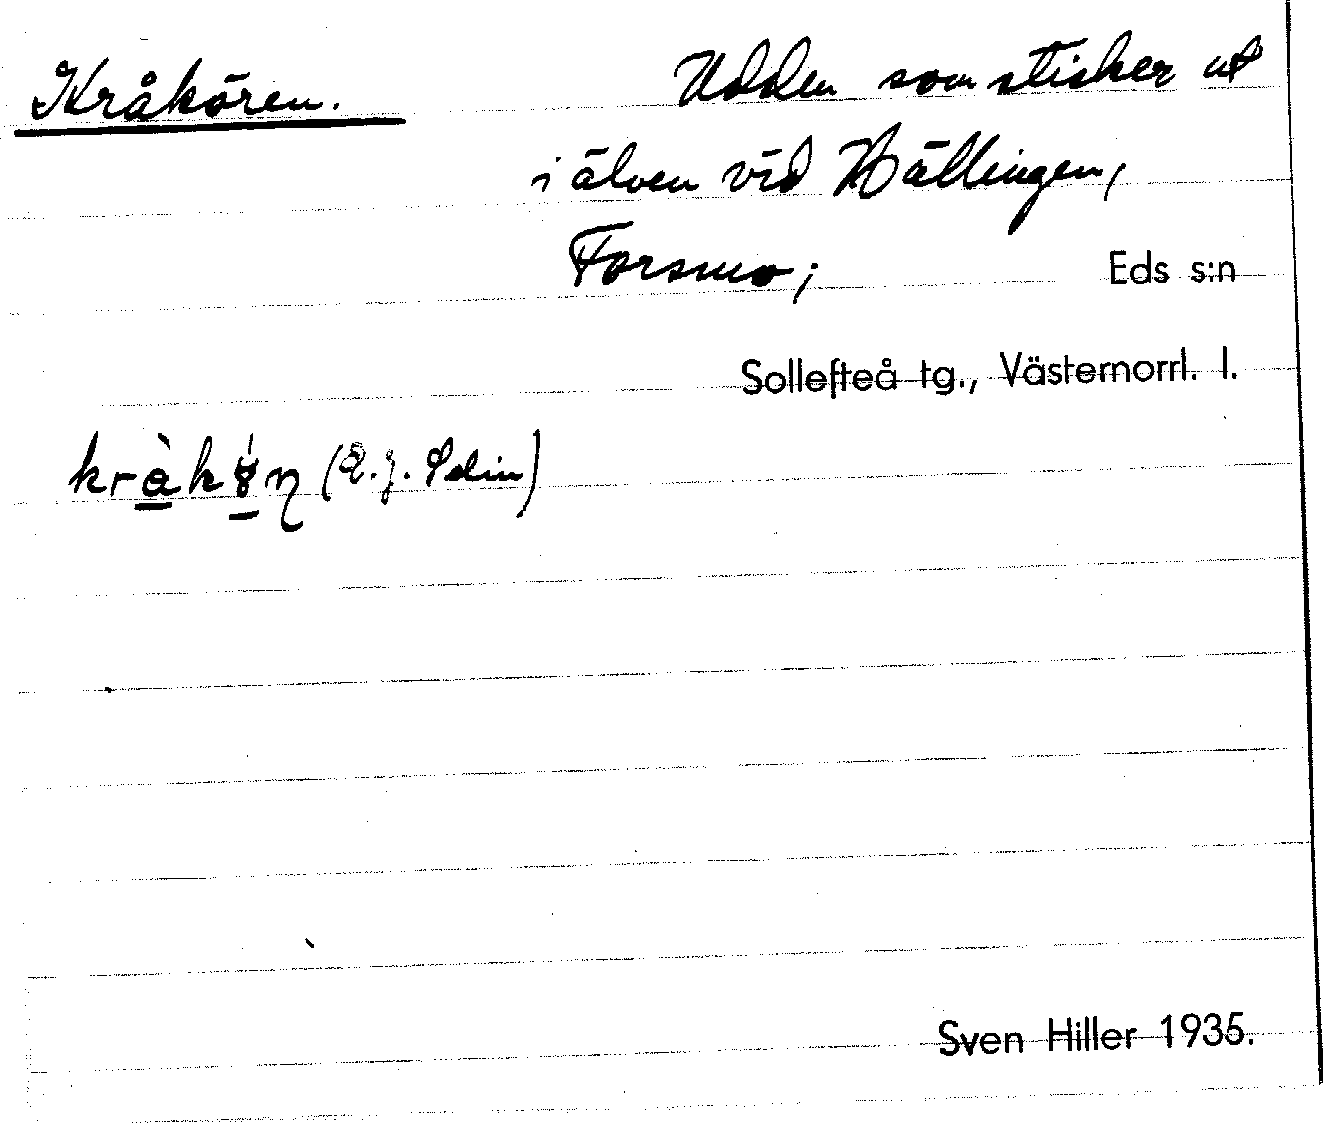 Kråkören. Udden som sticker ut
i älven vid Hällingen,
Forsmo; Eds s:n
Sollefteå tg., Västernorrl. l.
(E. J. Selin)
Sven Hiller 1935.